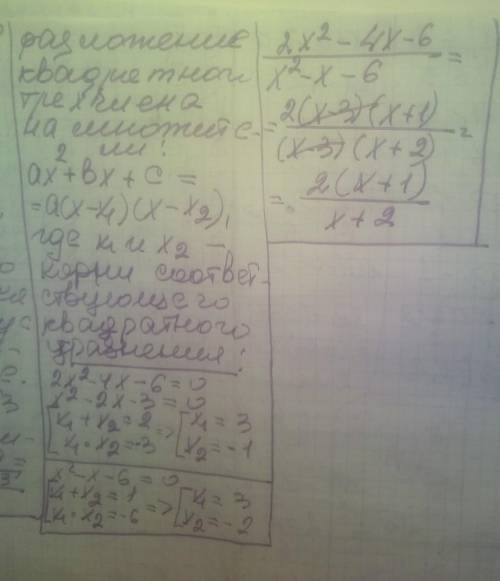 разложение
квадратного
трехчлена
на множите-
ли:
ax²+bx+c=
=a(x-x₁)(x-x₂),
где x₁ и x₂ –
корни соответ-
ствующего
квадратного
уравнения:
2x²-4x-6=0
x²-2x-3=0
[x₁+x₂=2
x₁·x₂=-3 => [x₁=3
x₂=-1
x²-x-6=0
[x₁+x₂=1
x₁·x₂=-6 => [x₁=3
x₂=-2
2x²-4x-6
x²-x-6
=
=
2(x-3)(x+1)
(x-3)(x+2)
=
=
2(x+1)
x+2